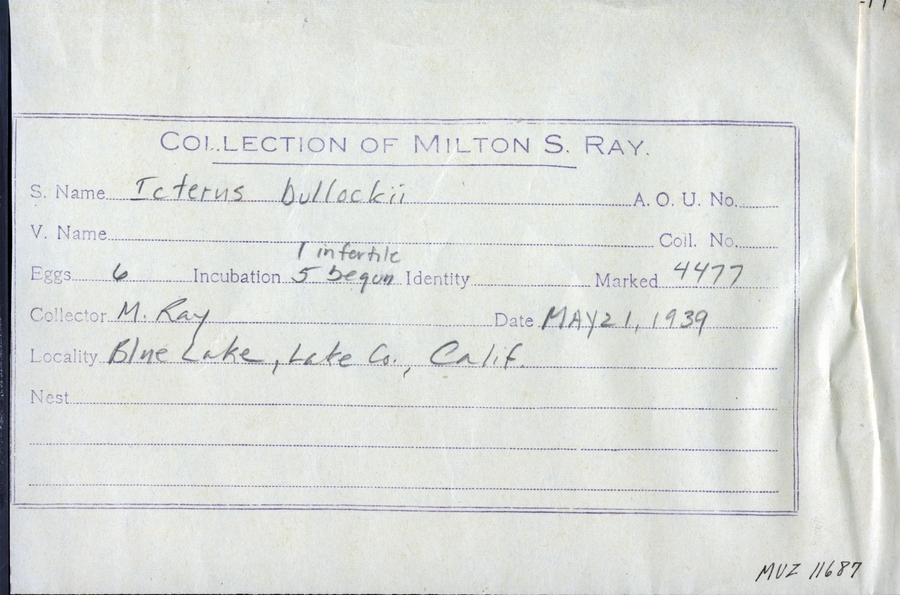 COLLECTION OF MILTON S. RAY.
S. Name Icterus bullockii A. O. U. No.
V. Name Coll. No.
1 infertile
Eggs 6 Incubation 5 begun Identity Marked 4477
Collector M. Ray Date MAY 21, 1939
Locality Blue Lake, Lake Co., Calif.
Nest
MVZ 11687